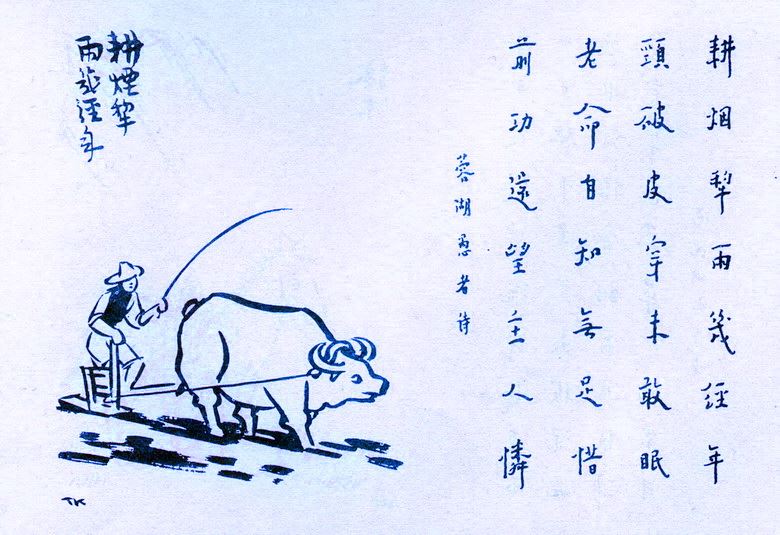 耕烟犁雨幾經年
頸破皮穿未敢眠
老命自知無足惜
前功還望主人憐
蓉湖愚者詩
耕煙犁
雨幾經年
TK